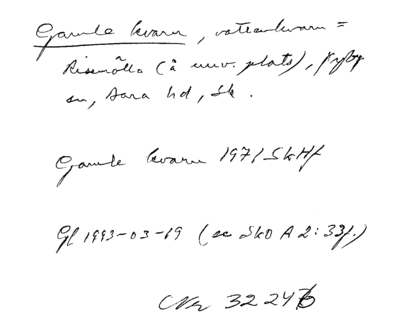 Gamle kvarn, vattenkvarn =
Risemölla (å nuv. plats), Fryby
sn, Jära hd, Sk.
Gamle kvarn 1971 SkHf
Gf 1993-03-19 (se SkO A 2:33f.)
CNr 32 24